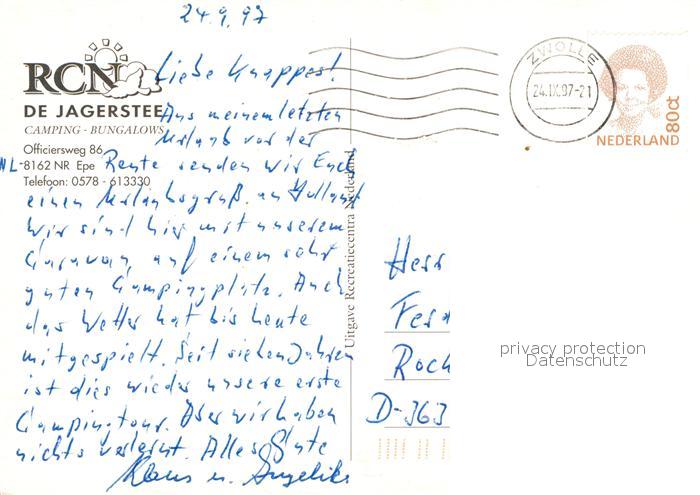 24.9.97
RCN
DE JAGERSTEE
CAMPING - BUNGALOWS
Officiersweg 86
NL-8162 NR Epe
Telefoon: 0578 - 613330
Liebe Knappest!
Aus meinem letzten
Urlaub vor der
Rente senden wir Euch
einen Urlaubsgruß an Holland
Wir sind hier mit unserem
Caravan auf einem sehr
guten Campingplatz. Auch
das Wetter hat bis heute
mitgespielt. Seit sieben Jahren
ist dies wieder unsere erste
Campingtour. Aber wir haben
nichts verlernt. Alles Gute
Klaus u. Angelika
Uitgave Recreatiecentra Nederland
ZWOLLE
24.IX.97-21
NEDERLAND
80ct
Herr
Ferd
Roch
D-363
privacy protection
Datenschutz